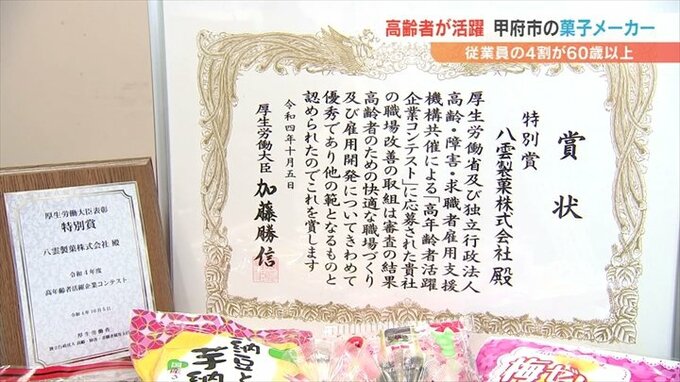 高齢者が活躍 甲府市の菓子メーカー
従業員の4割が60歳以上
賞状
特別賞
八雲製菓株式会社 殿
厚生労働省及び独立行政法人
高齢・障害・求職者雇用支援
機構共催による「高年齢者活躍
企業コンテスト」に応募された貴社
の職場改善の取組は審査の結果
高齢者のための快適な職場づくり
及び雇用開発についてきわめて
優秀であり他の範となるものと
認められたのでこれを賞します
令和四年十月五日
厚生労働大臣 加藤勝信
厚生労働大臣表彰
特別賞
八雲製菓株式会社 殿
令和4年度
高年齢者活躍企業コンテスト
令和4年10月5日
厚生労働省
独立行政法人 高齢・障害・求職者雇用支援機構
納豆と
芋納